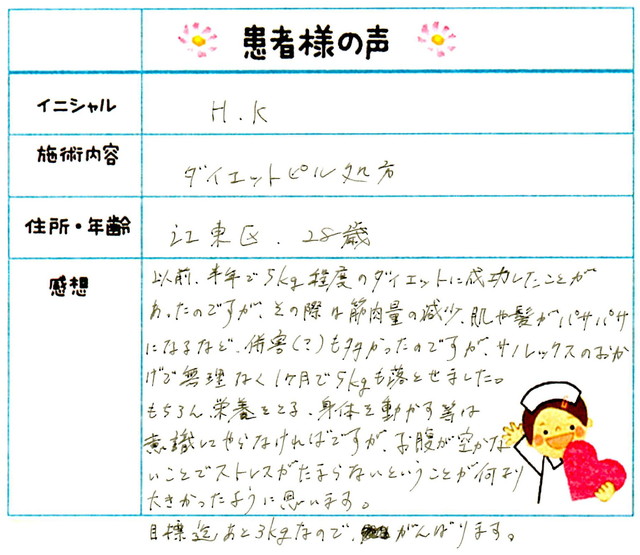 患者様の声
イニシャル
H.K
施術内容
ダイエットピル処方
住所・年齢
江東区. 28歳
感想
以前、半年で5kg程度のダイエットに成功したことが
あったのですが、その際は筋肉量の減少、肌や髪がパサパサ
になるなど、併害(?)も多かったのですが、サノレックスのおか
げで無理なく1ヶ月で5kgも落とせました。
もちろん栄養をとる、身体を動かす等は
意識してやらなければですが、お腹が空かな
いことでストレスがたまらないということが何より
大きかったように思います。
目標迄あと3kgなので、がんばります。